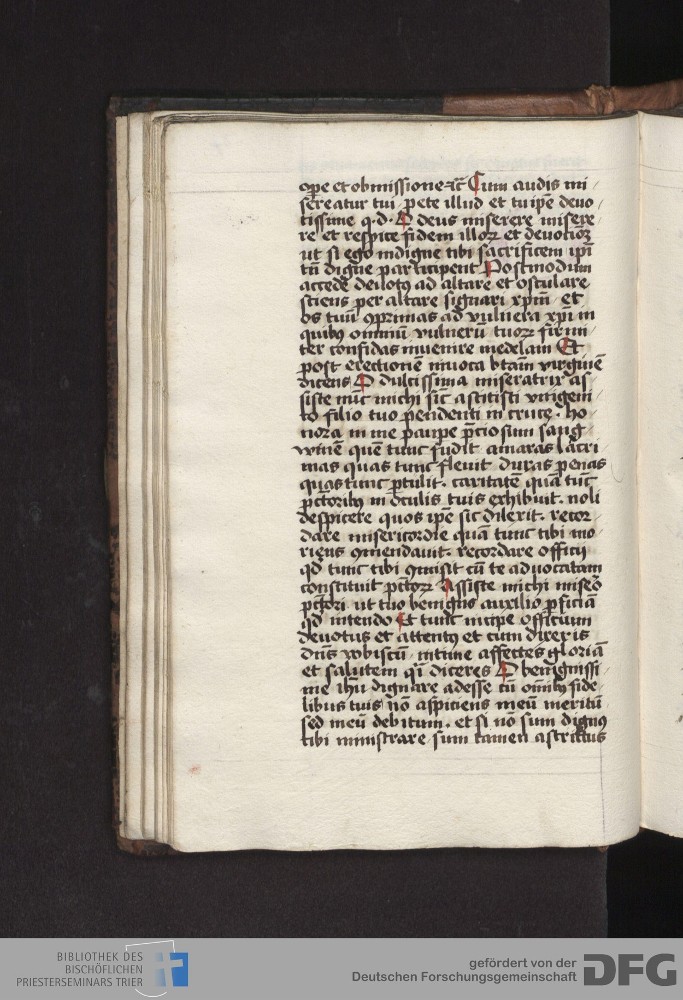 op̄e et obmissione ⁊c̄ Cum audis mi
sereatur tui / pete illud et tu ip̄e deuo
tissime q.d. O deus miserere misere
re et respice fidem illoꝝ et deuotiōꝫ
ut si ego indigne tibi sacrificem ip̄i
tn̄ digne participent Postmodum
accede deuotꝰ ad altare et osculare
sciens per altare signari xp̄m / et
os tuū ꝯprimas ad vulnera xp̄i in
quibꝰ omniū vulnerū tuoꝝ firmi
ter confidas inuenire medelam Et
post erectionē inuoca btām virginē
dicens O dulcissima miseratrix as
siste nūc michi sic̄ astitisti vnigeni
to filio tuo pendenti in cruce . ho
nora in me paupe p̄ciosum sang
winē quē tunc fudit amaras lacri
mas quas tunc fleuit duras penas
quas tunc ꝑtulit . caritatē quā tūc
pctōribꝰ in oculis tuis exhibuit . noli
despicere quos ip̄e sic dilexit . recor
dare misericordie quā tunc tibi mo
riens ꝯmendauit . recordare officii
qd̄ tunc tibi ꝯmisit cū te aduocatam
constituit pctōꝝ Assiste michi miserō
pctōri ut tuo benigno auxilio ꝑficiā
qd̄ intendo Et tunc incipe officium
deuotus et attentꝰ et cum dixeris
dn̄s vobiscū / intime affectes gloriā
et salutem q̄i diceres O benignissi
me ih̄u dignare adesse cū omībꝰ fide
libus tuis nō aspiciens meū meritū
sed meū debitum . et si nō sum dignꝰ
tibi ministrare / sum tamen astrictus
BIBLIOTHEK DES
BISCHÖFLICHEN
PRIESTERSEMINARS TRIER
gefördert von der
Deutschen Forschungsgemeinschaft DFG